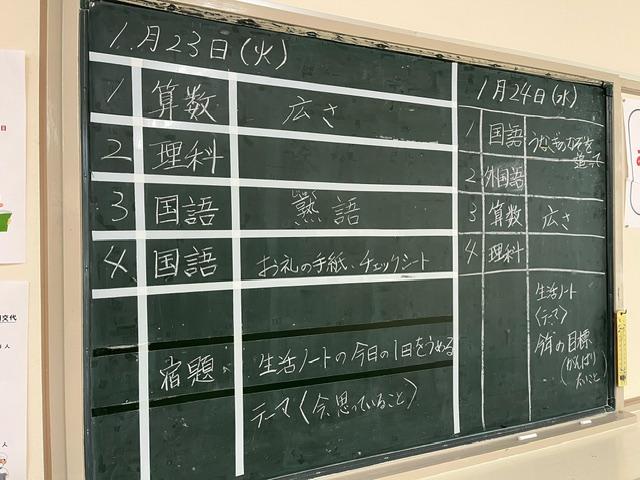 1月23日(火)
1 算数 広さ
2 理科
3 国語 熟語
じゅく
4 国語 お礼の手紙、チェックシート
宿題 生活ノートの今日の1日をうめる
テーマ〈今、思っていること〉
1月24日(水)
1 国語 うなぎのなぞを
追って
2 外国語
3 算数 広さ
4 理科
生活ノート
〈テーマ〉
今年の目標
(がんばり
たいこと)